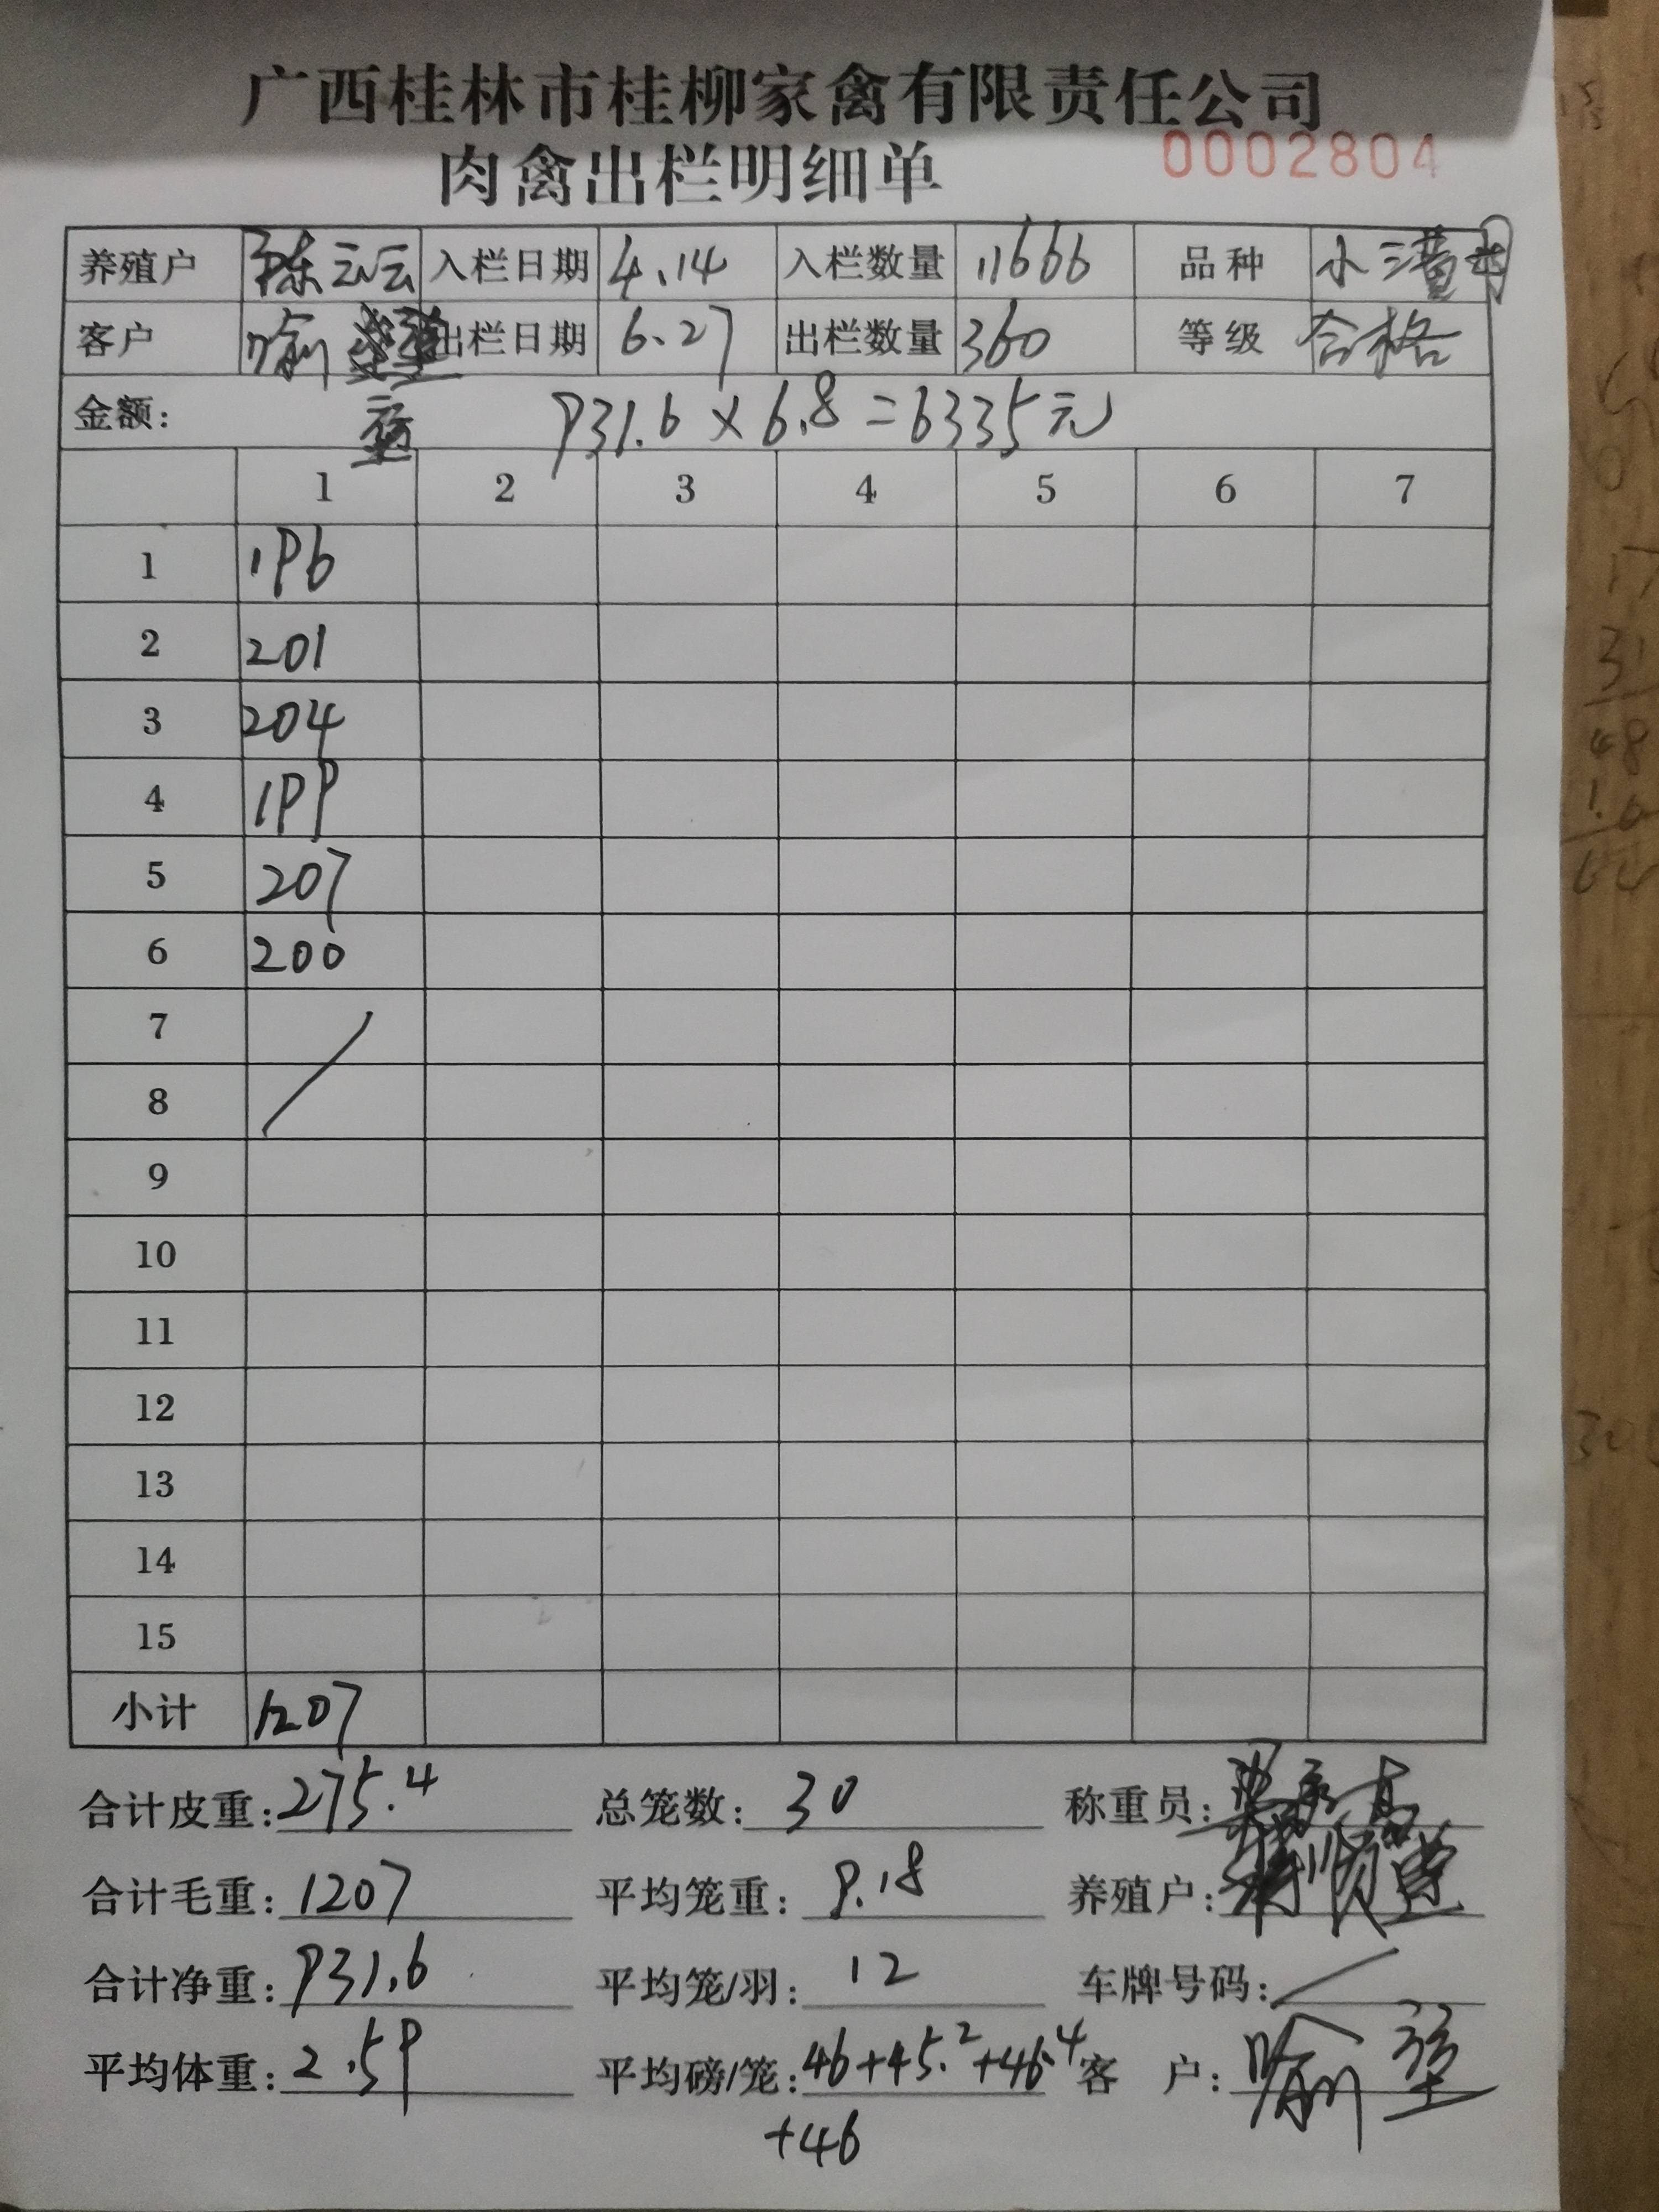 广西桂林市桂柳家禽有限责任公司
肉禽出栏明细单 0002804
养殖户 陈云云 入栏日期 4.14 入栏数量 11666 品种 小三黄
客户 喻 出栏日期 6.27 出栏数量 360 等级 合格
金额: 931.6 × 6.8 = 6335元
1 2 3 4 5 6 7
1 196
2 201
3 204
4 199
5 207
6 200
7
8
9
10
11
12
13
14
15
小计 1207
合计皮重: 275.4 总笼数: 30 称重员:
合计毛重: 1207 平均笼重: 9.18 养殖户:
合计净重: 931.6 平均笼/羽: 12 车牌号码: /
平均体重: 2.59 平均磅/笼: 46+45.2+46.4 客 户: 喻
+46